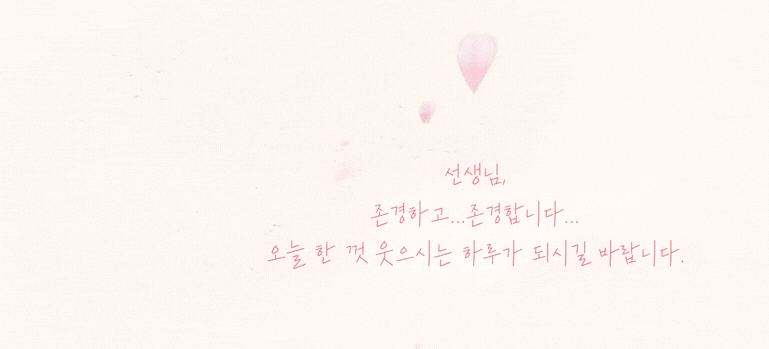 선생님,
존경하고...존경합니다...
오늘 한 껏 웃으시는 하루가 되시길 바랍니다.